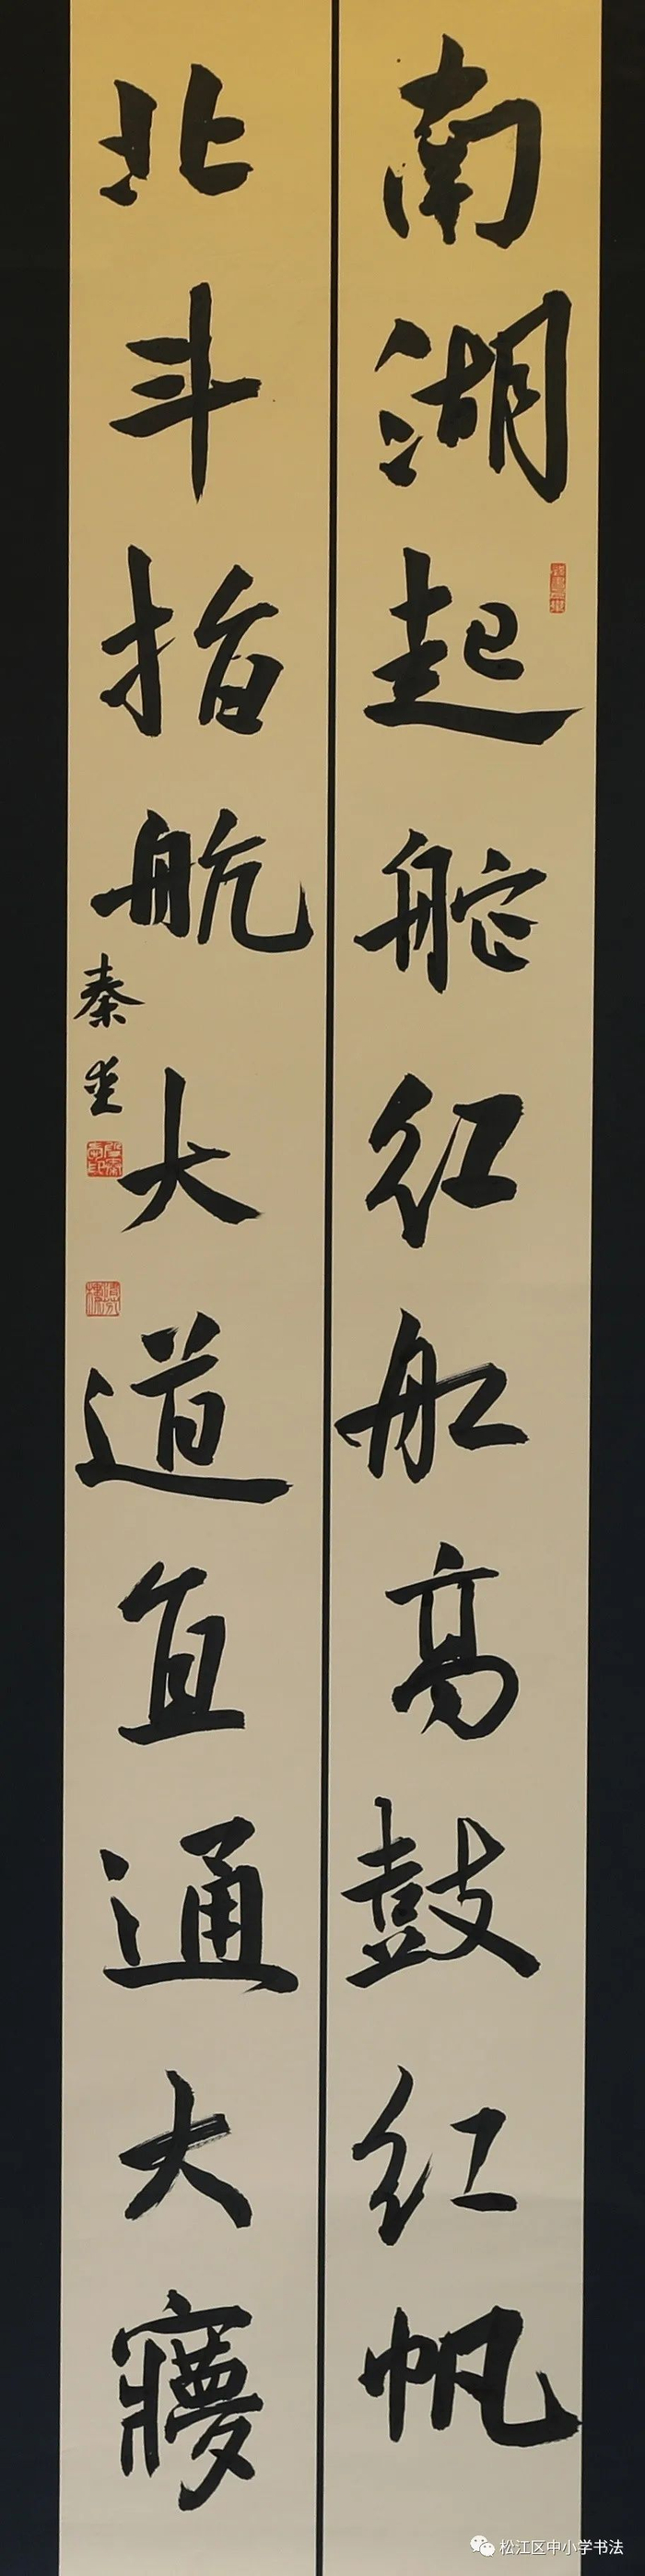 南湖起舵红船高鼓红帆
北斗指航大道直通大寢
秦
松江区中小学书法